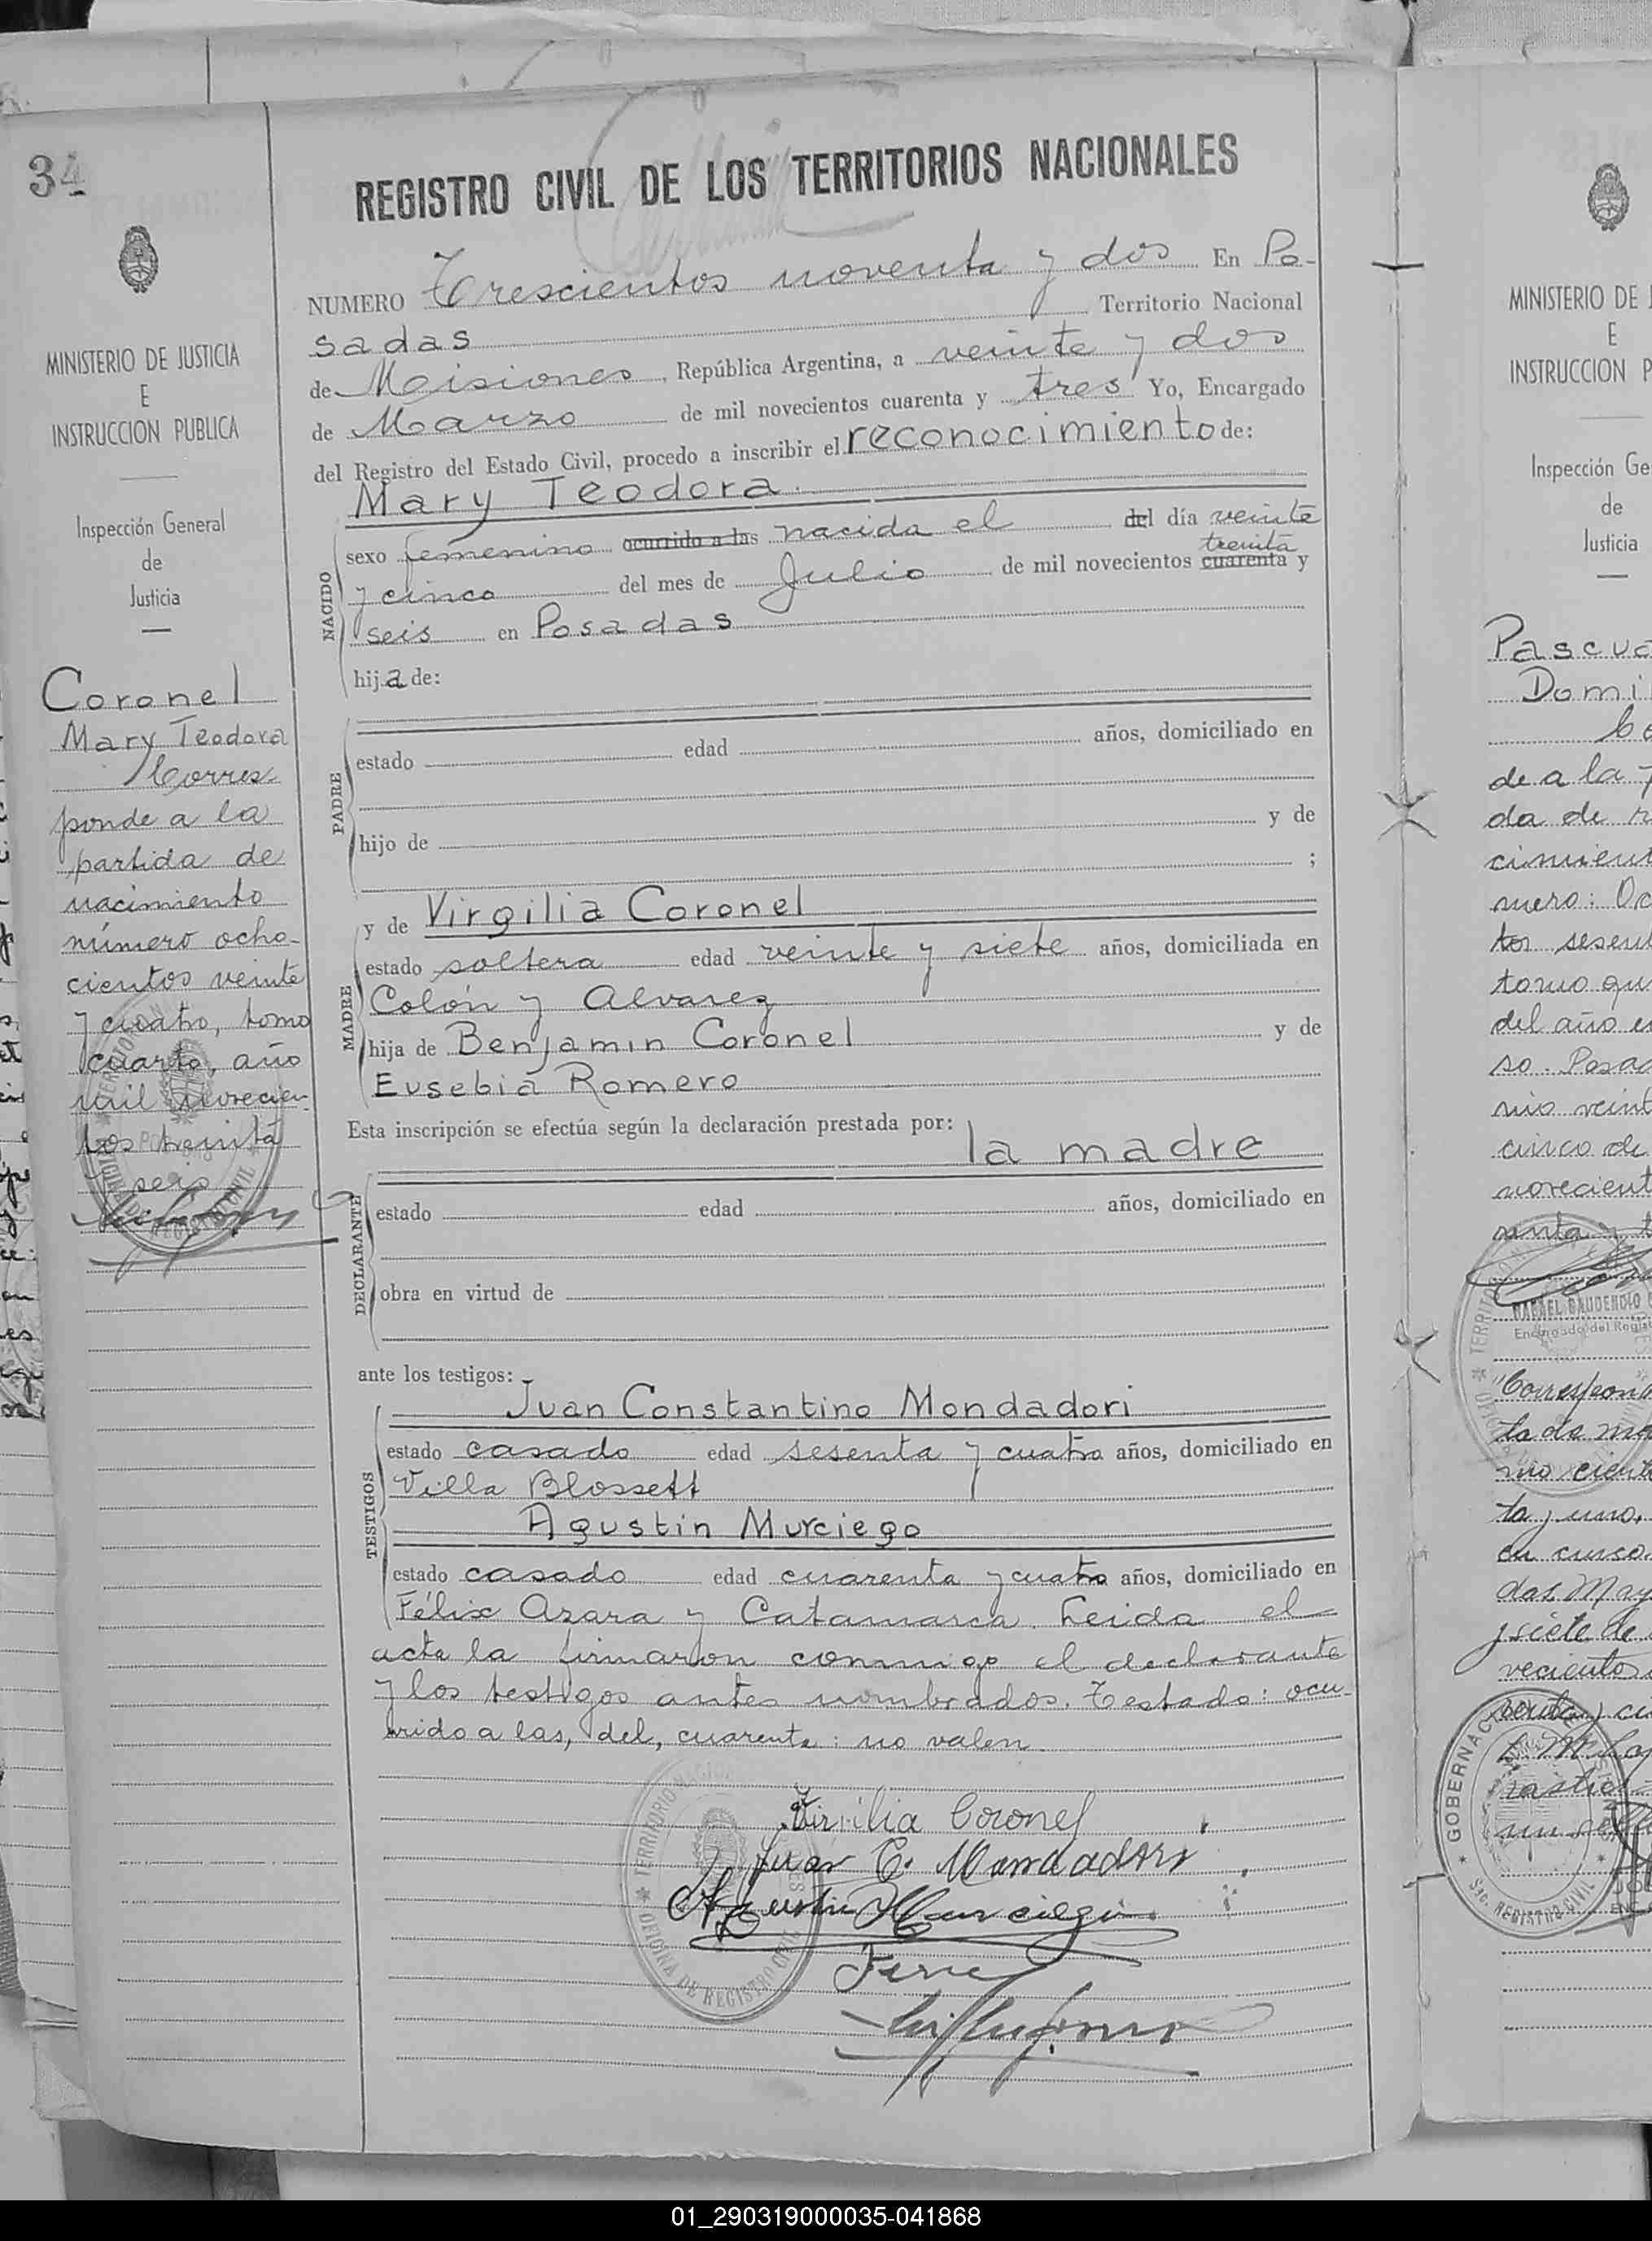 34
MINISTERIO DE JUSTICIA
E
INSTRUCCION PUBLICA
Inspección General
de
Justicia
Coronel
Mary Teodora
Corres
ponde a la
partida de
nacimiento
número ocho-
cientos veinte
y cuatro, tomo
cuarto, año
mil novecien-
tos treinta
y seis
REGISTRO CIVIL DE LOS TERRITORIOS NACIONALES
NUMERO Trescientos noventa y dos En Po-
sadas Territorio Nacional
de Misiones, República Argentina, a veinte y dos
de Marzo de mil novecientos cuarenta y tres Yo, Encargado
del Registro del Estado Civil, procedo a inscribir el reconocimiento de:
Mary Teodora
NACIDO
sexo femenino ocurrido a las nacida el del día veinte
treinta
y cinco del mes de Julio de mil novecientos cuarenta y
seis en Posadas
hija de:
PADRE
estado edad años, domiciliado en
hijo de y de
;
y de Virgilia Coronel
MADRE
estado soltera edad veinte y siete años, domiciliada en
Colón y Alvarez
hija de Benjamin Coronel y de
Eusebia Romero
Esta inscripción se efectúa según la declaración prestada por:
la madre
DECLARANTE
estado edad años, domiciliado en
obra en virtud de
ante los testigos:
Juan Constantino Mondadori
TESTIGOS
estado casado edad sesenta y cuatro años, domiciliado en
Villa Blossett
Agustin Murciego
estado casado edad cuarenta y cuatro años, domiciliado en
Félix Azara y Catamarca. Leida el
acta la firmaron conmigo el declarante
y los testigos antes nombrados. Testado: ocu-
rrido a las, del, cuarenta: no valen.
Virgilia Coronel
Juan C. Mondadori
Agustin Murciego
TERRITORIO NACIONAL
OFICINA DE REGISTRO CIVIL
MINISTERIO DE
E
INSTRUCCION P
Inspección Ge
de
Justicia
Pascua
Domi
de a la
da de r
cimient
mero: Oc
tos sesent
tomo qu
del año e
so. Posad
nio veint
cinco de
novecient
RAFAEL GAUDENCIO
Encargado del Regis
Correspon
y siete de
vecientos
GOBERNAC
Sec. REGISTRO CIVIL
01_290319000035-041868